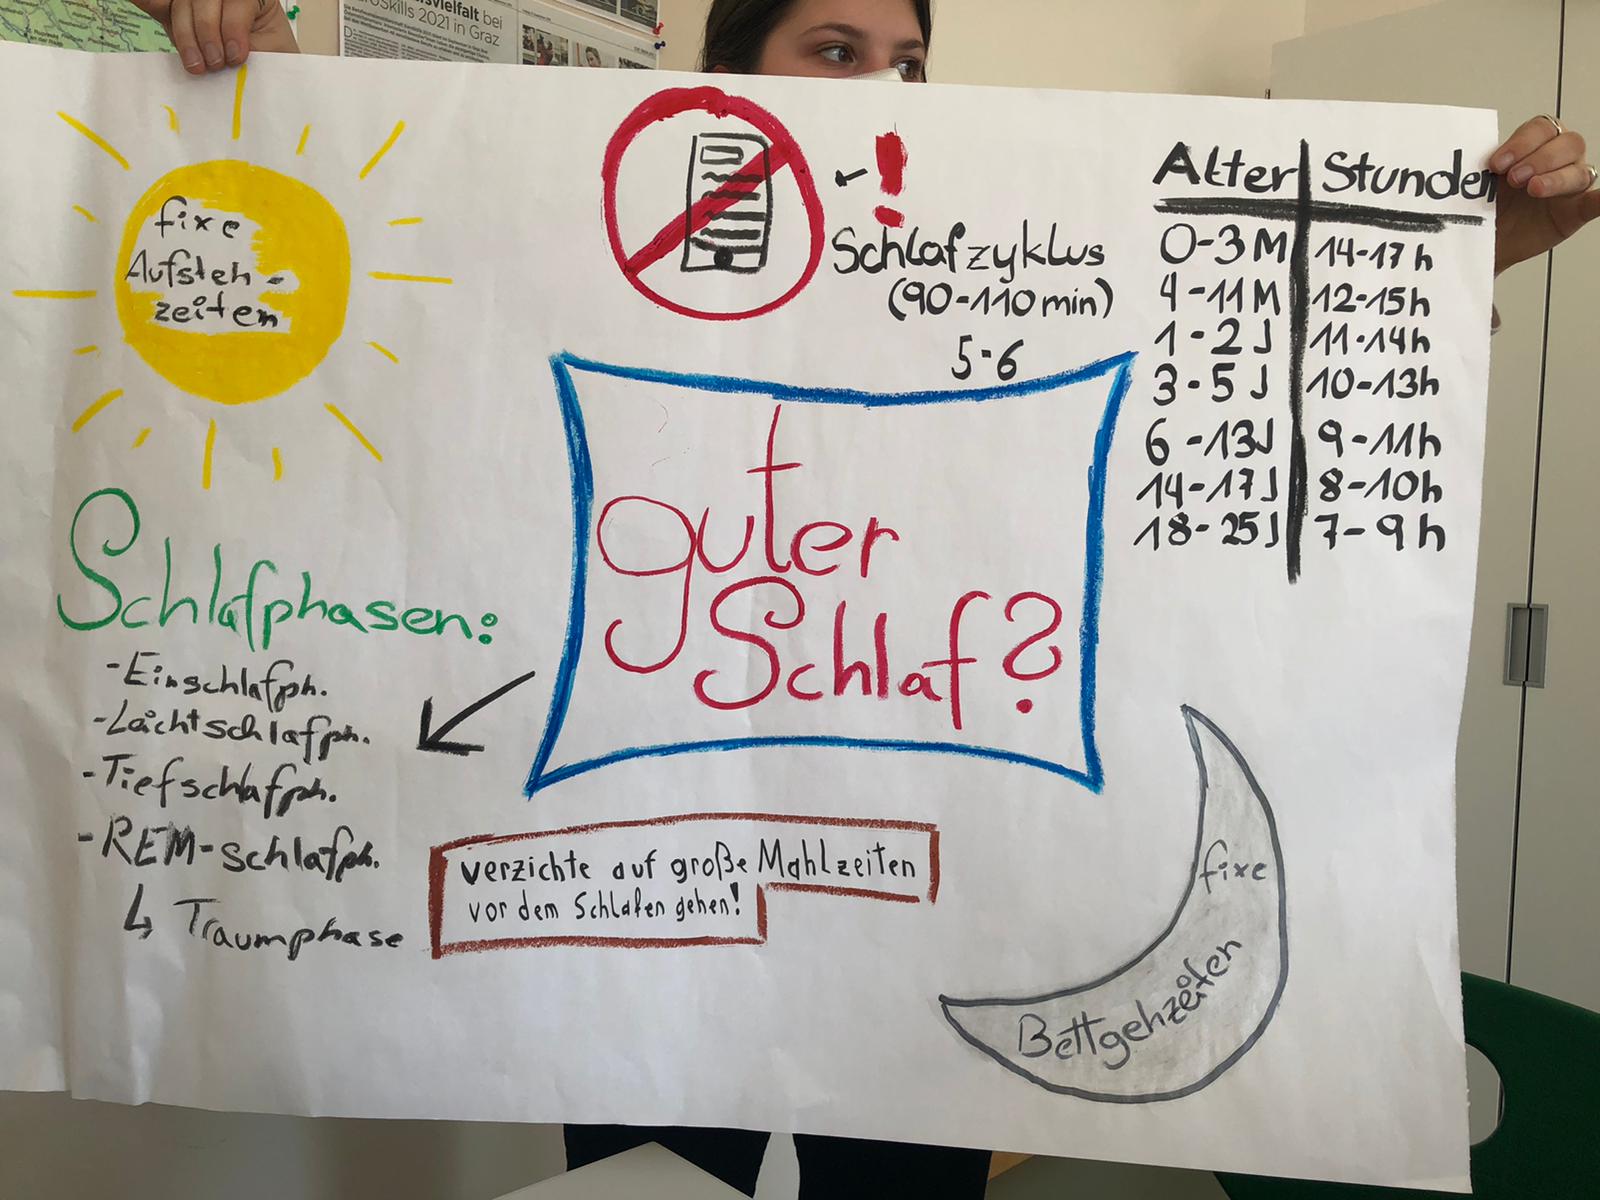 svielfalt bei
roSkills 2021 in Graz
fixe
Aufsteh-
zeiten
!
Schlafzyklus
(90-110min)
5-6
Alter Stunden
0-3 M 14-17h
4-11M 12-15h
1-2 J 11-14h
3-5 J 10-13h
6-13J 9-11h
14-17J 8-10h
18-25J 7-9h
guter
Schlaf?
Schlafphasen:
-Einschlafph.
-Leichtschlafph.
-Tiefschlafph.
-REM-schlafph.
↳ Traumphase
verzichte auf große Mahlzeiten
vor dem Schlafen gehen!
fixe
Bettgehzeiten